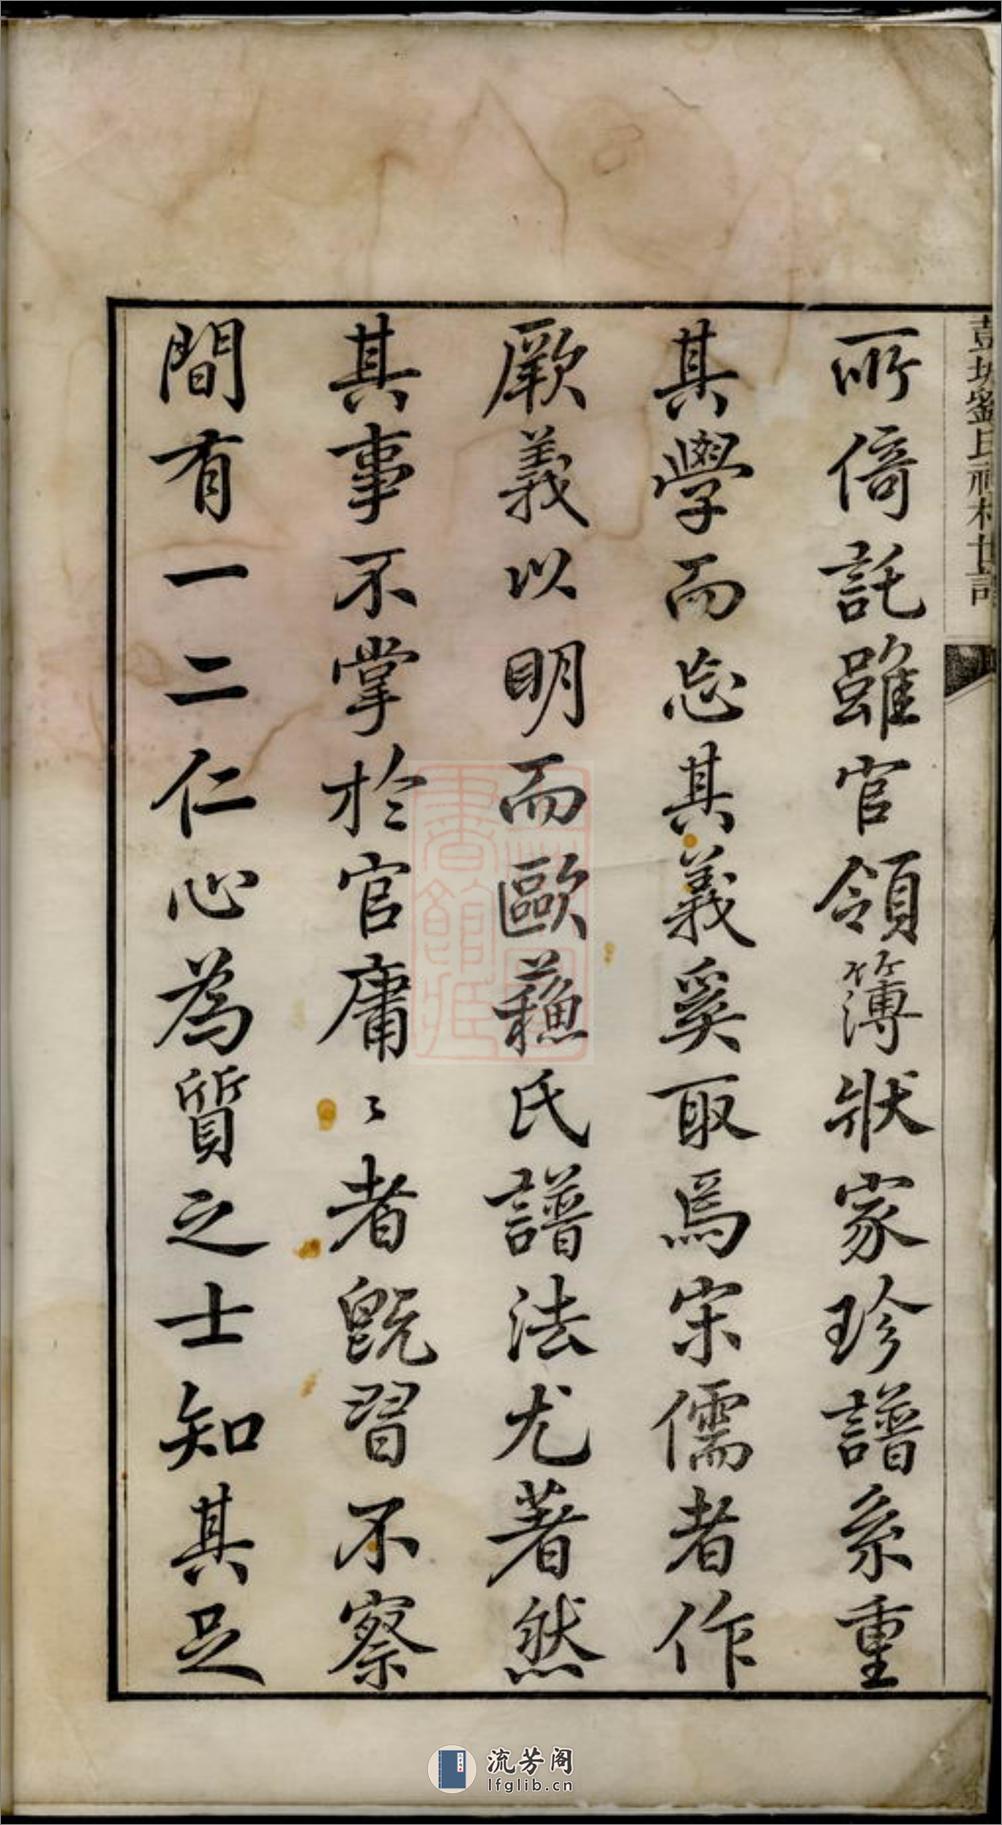 所倚託雖官領簿狀家珍譜系重
其學而忘其義奚取焉宋儒者作
厥義以明而歐蘓氏譜法尤著然
其事不掌於官庸〻者旣習不察
間有一二仁心為質之士知其足
彭城劉氏祠村世譜
流芳阁
lfglib.cn